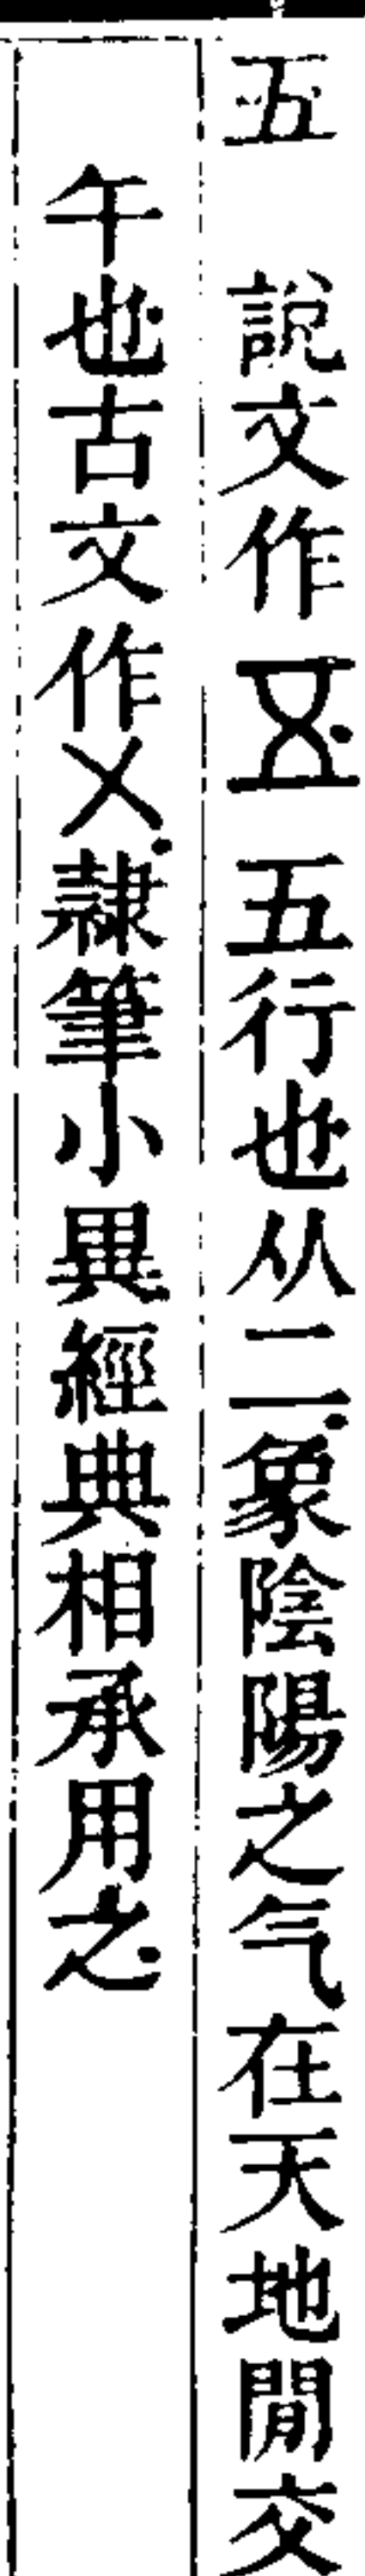 五　說文作𠄡五行也从二象陰陽之气在天地閒交
午也古文作㐅隸筆小異經典相承用之